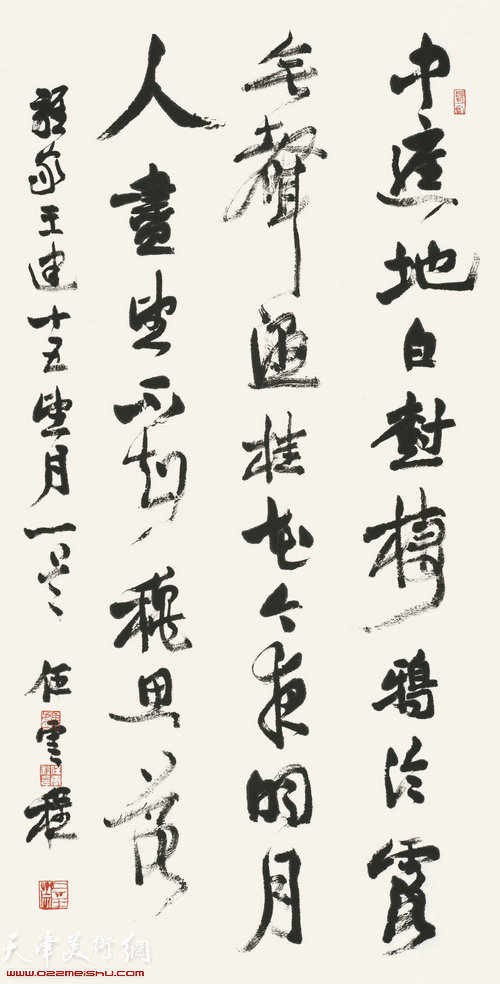 中庭地白樹棲鴉冷露
無聲濕桂花今夜明月
人盡望不知秋思落
誰家王建十五望月一首 任雲程
天津美術網
www.022meishu.com